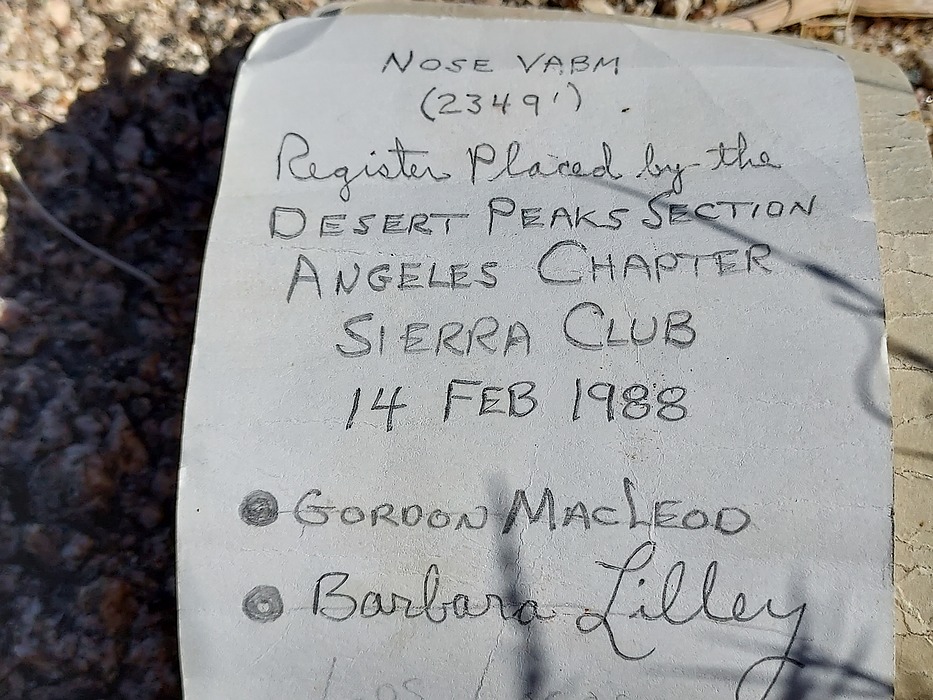 NOSE VABM
(2349')
Register Placed by the
DESERT PEAKS SECTION
ANGELES CHAPTER
SIERRA CLUB
14 FEB 1988
GORDON MACLEOD
Barbara Lilley